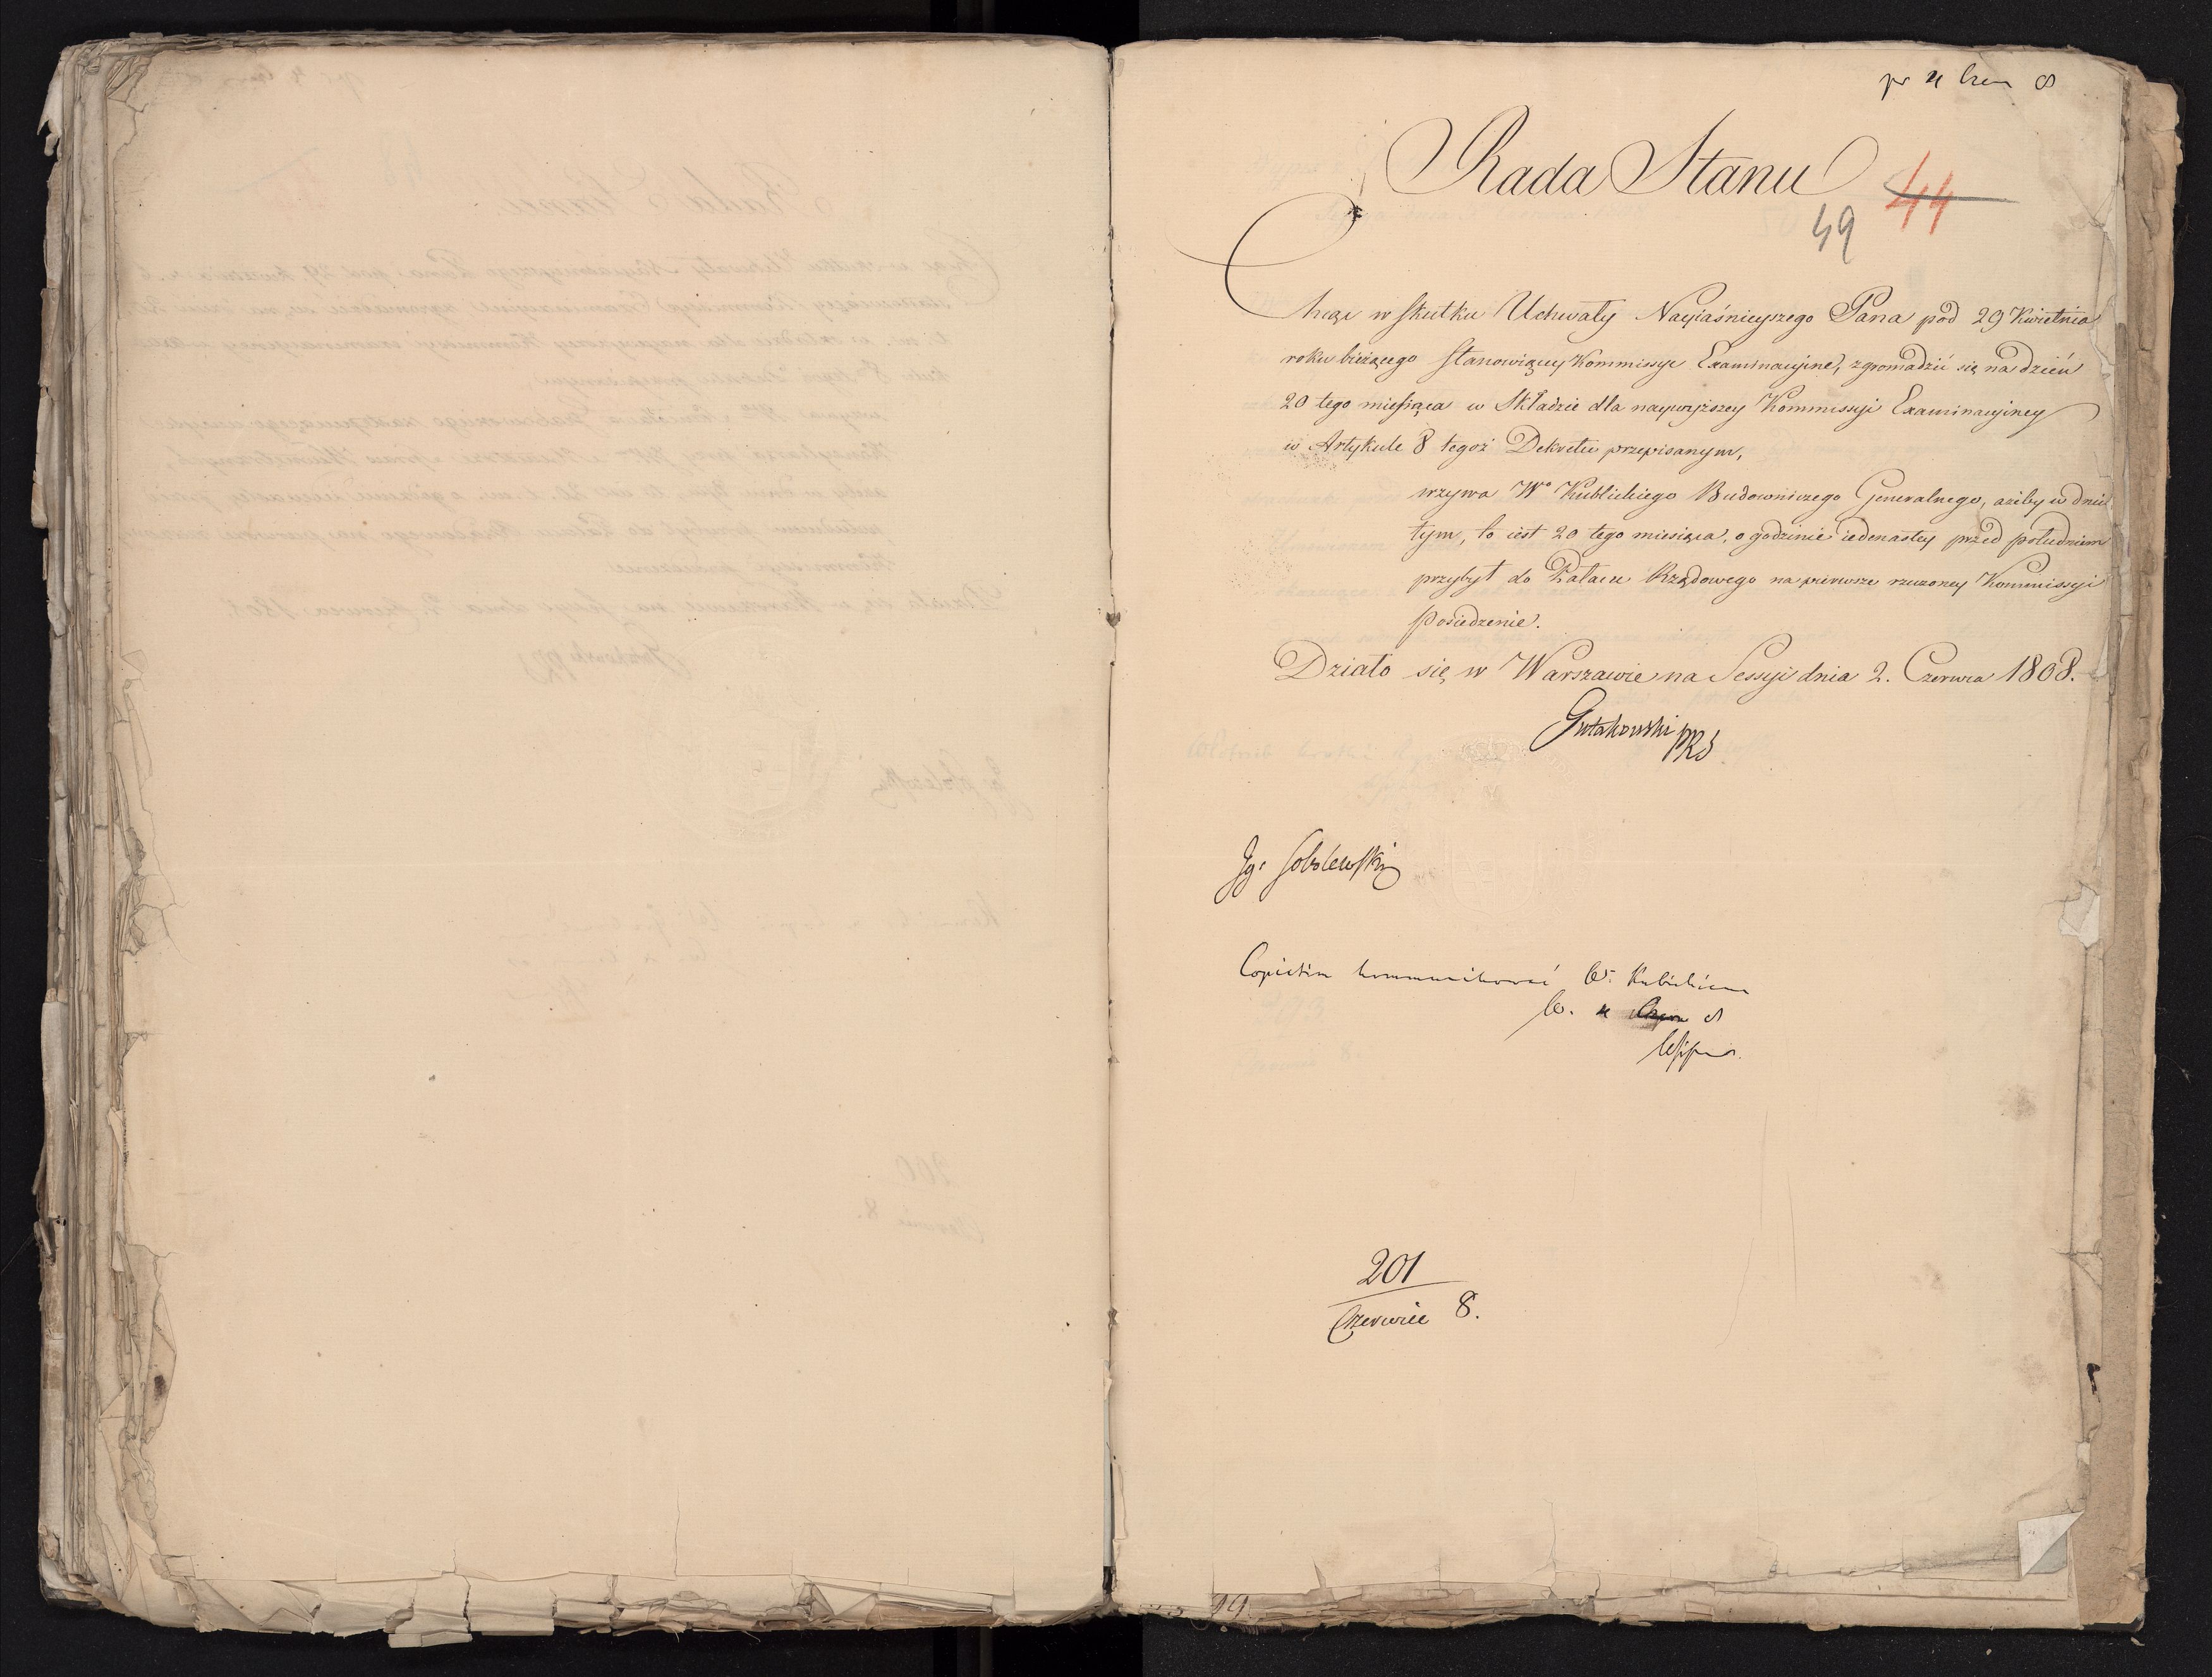 pr 4 Czer 8
Rada Stanu
44
49
Chcąc w skutku Uchwały Nayiaśnieyszego Pana pod 29 Kwietnia
roku bieżącego stanowiącey Kommissye Examinacyine, zgromadzić się na dzień
20 tego miesiąca w Składzie dla naywyższey Kommissyi Examinacyiney
w Artykule 8 tegoż Dekretu przepisanym,
wzywa Wo Kubickiego Budowniczego Generalnego, ażeby w dniu
tym, to iest 20 tego miesiąca, o godzinie iedenastey przed południem
przybył do Pałacu Rządowego na pierwsze rzeczoney Kommissyi
posiedzenie.
Działo się w Warszawie na Sessyi dnia 2. Czerwca 1808.
Gutakowski PRS
Ig. Sobolewski
Copiatim kommunikować W. Kubickiemu
W. 4 8
201
Czerwiec 8.